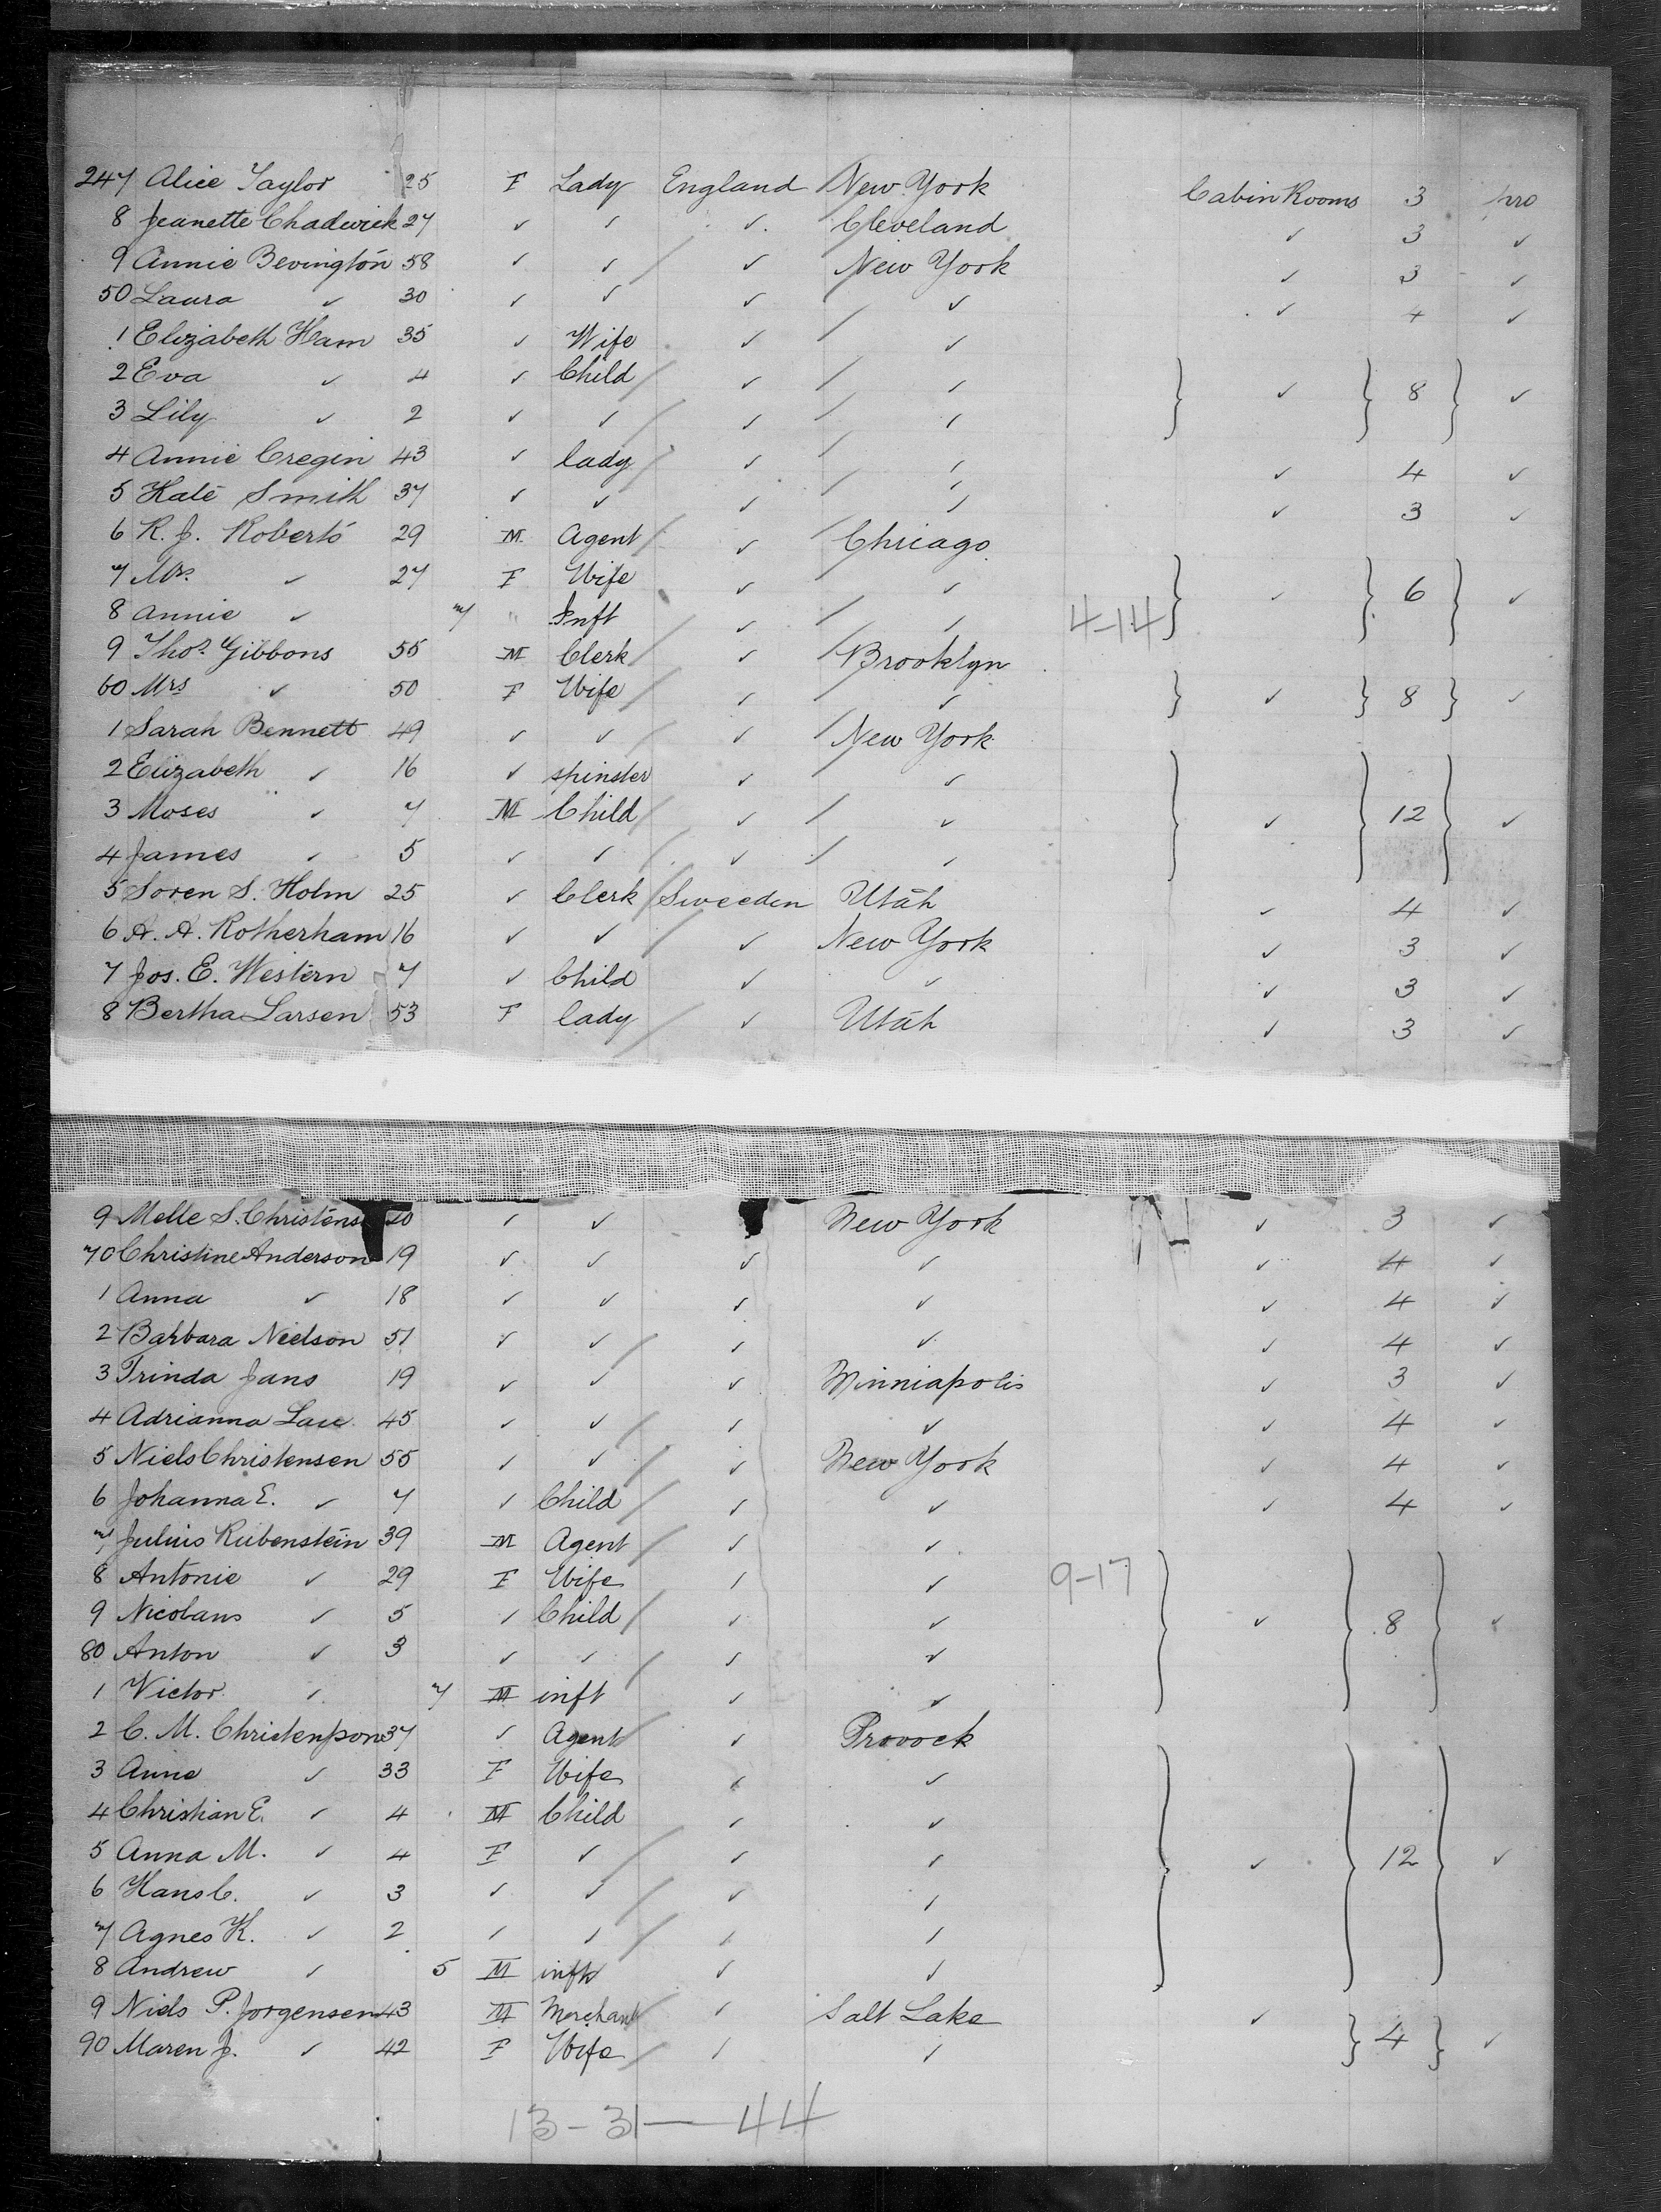 247 Alice Taylor 25 F Lady England New York Cabin Rooms 3 pro
8 Jeanette Chadwick 27 ✓ ✓ ✓ Cleveland ✓ 3 ✓
9 Annie Bevington 58 ✓ ✓ ✓ New York ✓ 3 ✓
50 Laura ✓ 30 ✓ ✓ ✓ ✓ ✓ 4 ✓
1 Elizabeth Ham 35 ✓ Wife ✓ ✓
2 Eva ✓ 4 ✓ Child ✓ ✓ ✓ 8 ✓
3 Lily ✓ 2 ✓ ✓ ✓ ✓
4 Annie Cregin 43 ✓ lady ✓ ✓ ✓ 4 ✓
5 Kate Smith 37 ✓ ✓ ✓ ✓ ✓ 3 ✓
6 R. J. Roberts 29 M Agent ✓ Chicago
7 Mrs. ✓ 27 F Wife ✓ ✓ ✓ 6 ✓
8 Annie ✓ 7 " Inft ✓ ✓ 4-14
9 Thos. Gibbons 55 M Clerk ✓ Brooklyn
60 Mrs ✓ 50 F Wife ✓ ✓ ✓ 8 ✓
1 Sarah Bennett 49 ✓ ✓ ✓ New York
2 Elizabeth ✓ 16 ✓ spinster ✓ ✓
3 Moses ✓ 7 M Child ✓ ✓ ✓ 12 ✓
4 James ✓ 5 ✓ ✓ ✓ ✓
5 Soren S. Holm 25 ✓ Clerk Sweeden Utah ✓ 4 ✓
6 A. A. Rotherham 16 ✓ ✓ ✓ New York ✓ 3 ✓
7 Jos. E. Western 7 ✓ Child ✓ ✓ ✓ 3 ✓
8 Bertha Larsen 53 F lady ✓ Utah ✓ 3 ✓
9 Melle S. Christens 20 ✓ ✓ New York ✓ 3 ✓
70 Christine Anderson 19 ✓ ✓ ✓ ✓ ✓ 4 ✓
1 Anna ✓ 18 ✓ ✓ ✓ ✓ ✓ 4 ✓
2 Barbara Nielson 51 ✓ ✓ ✓ ✓ ✓ 4 ✓
3 Trinda Jans 19 ✓ ✓ ✓ Minniapolis ✓ 3 ✓
4 Adrianna 45 ✓ ✓ ✓ ✓ ✓ 4 ✓
5 Niels Christensen 55 ✓ ✓ ✓ New York ✓ 4 ✓
6 Johanna E. ✓ 7 ✓ Child ✓ ✓ ✓ 4 ✓
7 Julius Rubenstein 39 M Agent ✓ ✓
8 Antonie ✓ 29 F Wife ✓ ✓ 9-17
9 Nicolaus ✓ 5 ✓ Child ✓ ✓ ✓ 8 ✓
80 Anton ✓ 3 ✓ ✓ ✓ ✓
1 Victor ✓ 7 M inft ✓ ✓
2 C. M. Christenson 37 ✓ Agent ✓ Provock
3 Anne ✓ 33 F Wife ✓ ✓
4 Christian E. ✓ 4 M Child ✓ ✓
5 Anna M. ✓ 4 F ✓ ✓ ✓ ✓ 12 ✓
6 Hans C. ✓ 3 ✓ ✓ ✓ ✓
7 Agnes K. ✓ 2 ✓ ✓ ✓ ✓
8 Andrew ✓ 5 M inft ✓ ✓
9 Niels P. Jorgensen 43 M Merchant ✓ Salt Lake ✓
90 Maren J. ✓ 42 F Wife ✓ ✓ 4 ✓
13-31—44